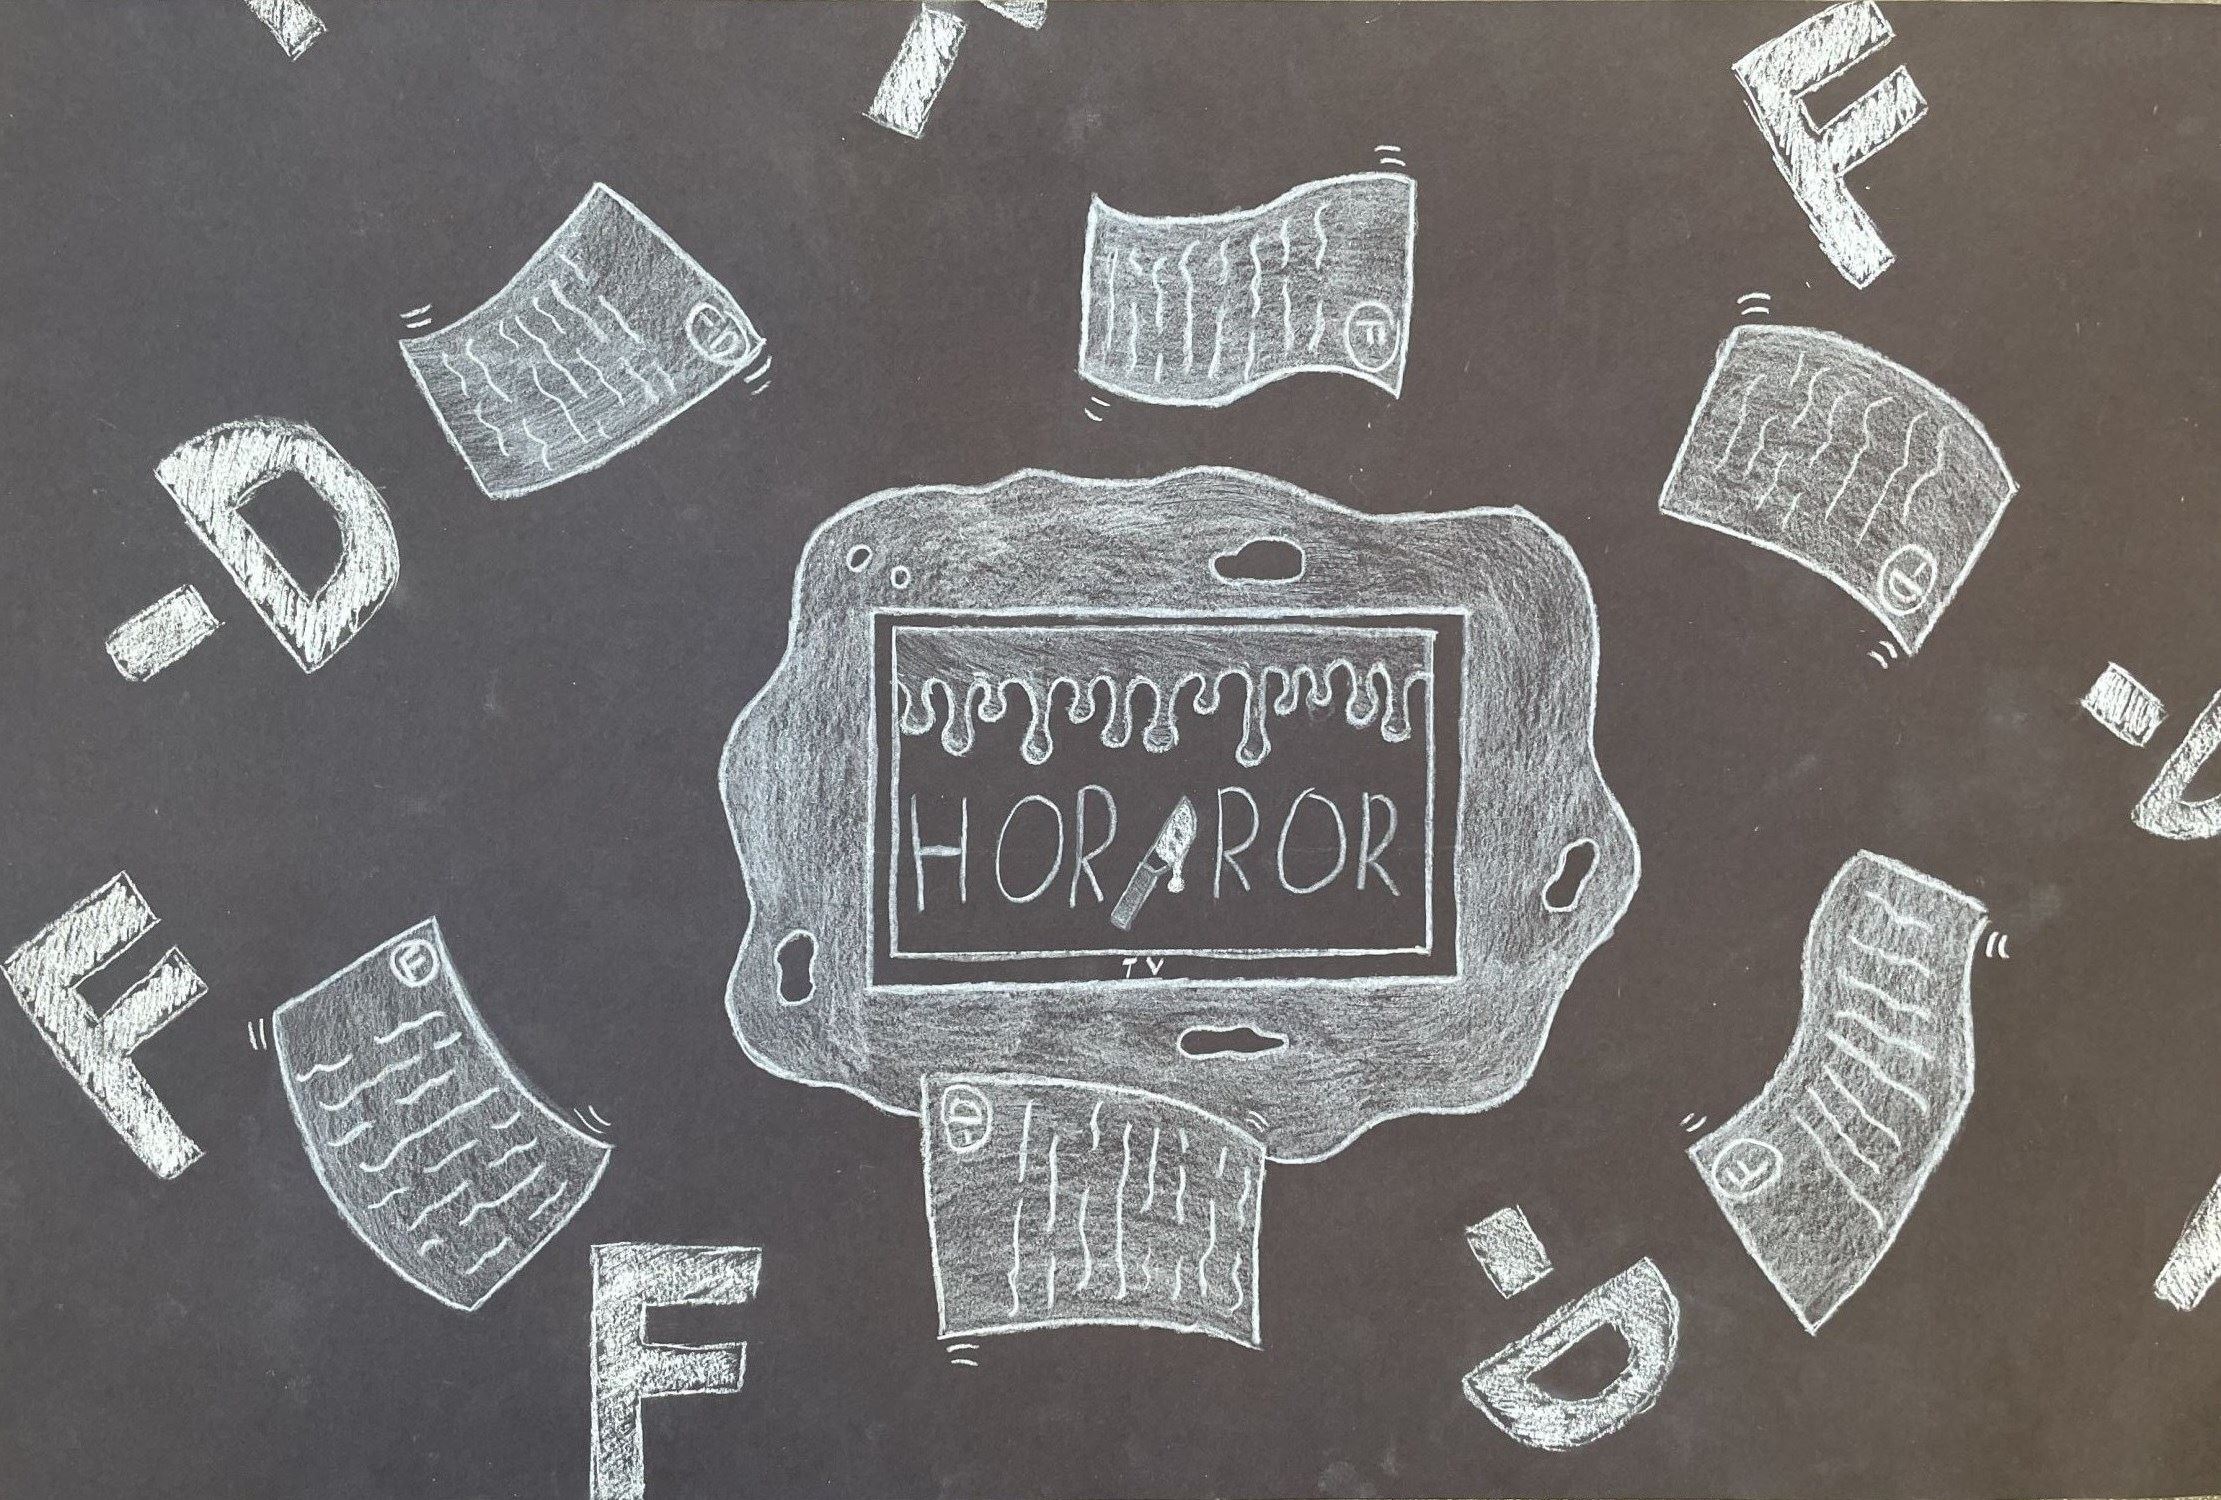 F
F
D-
D-
D-
D-
HORROR
TV
F
F
D-
F
D-
F